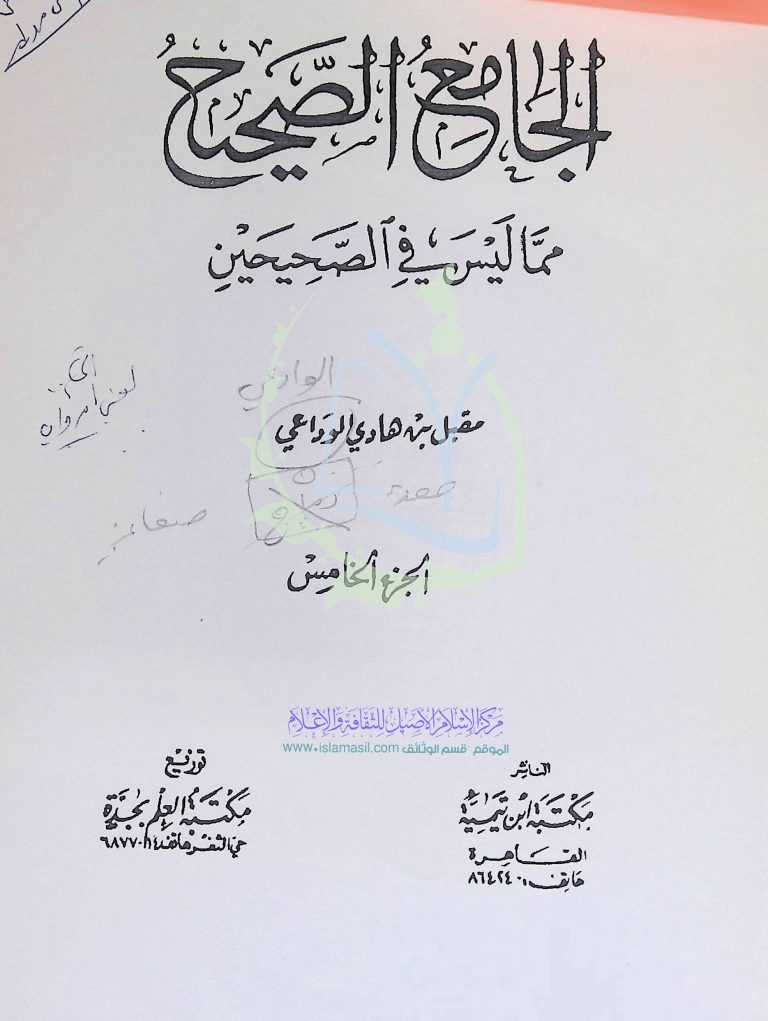 الجَامِعُ الصَّحِيحُ
مِمَّا لَيْسَ فِي الصَّحِيحَيْنِ
الوادعي
مقبل بن هادي الوَدَاعي
صعدة
دماج
الجزء الخامِسْ
مركز الإسلام الأصيل للثقافة والإعلام
الموقع - قسم الوثائق www.islamasil.com
الناشر
مَكتبَة ابْن تيميَّة
القَاهِرة
هَاتِف: ٨٦٤٢٤٠
توزيْع
مَكتبَة العِلْم بجُدَّة
حي الثغر هاتف ٦٨٧٧٠١٤